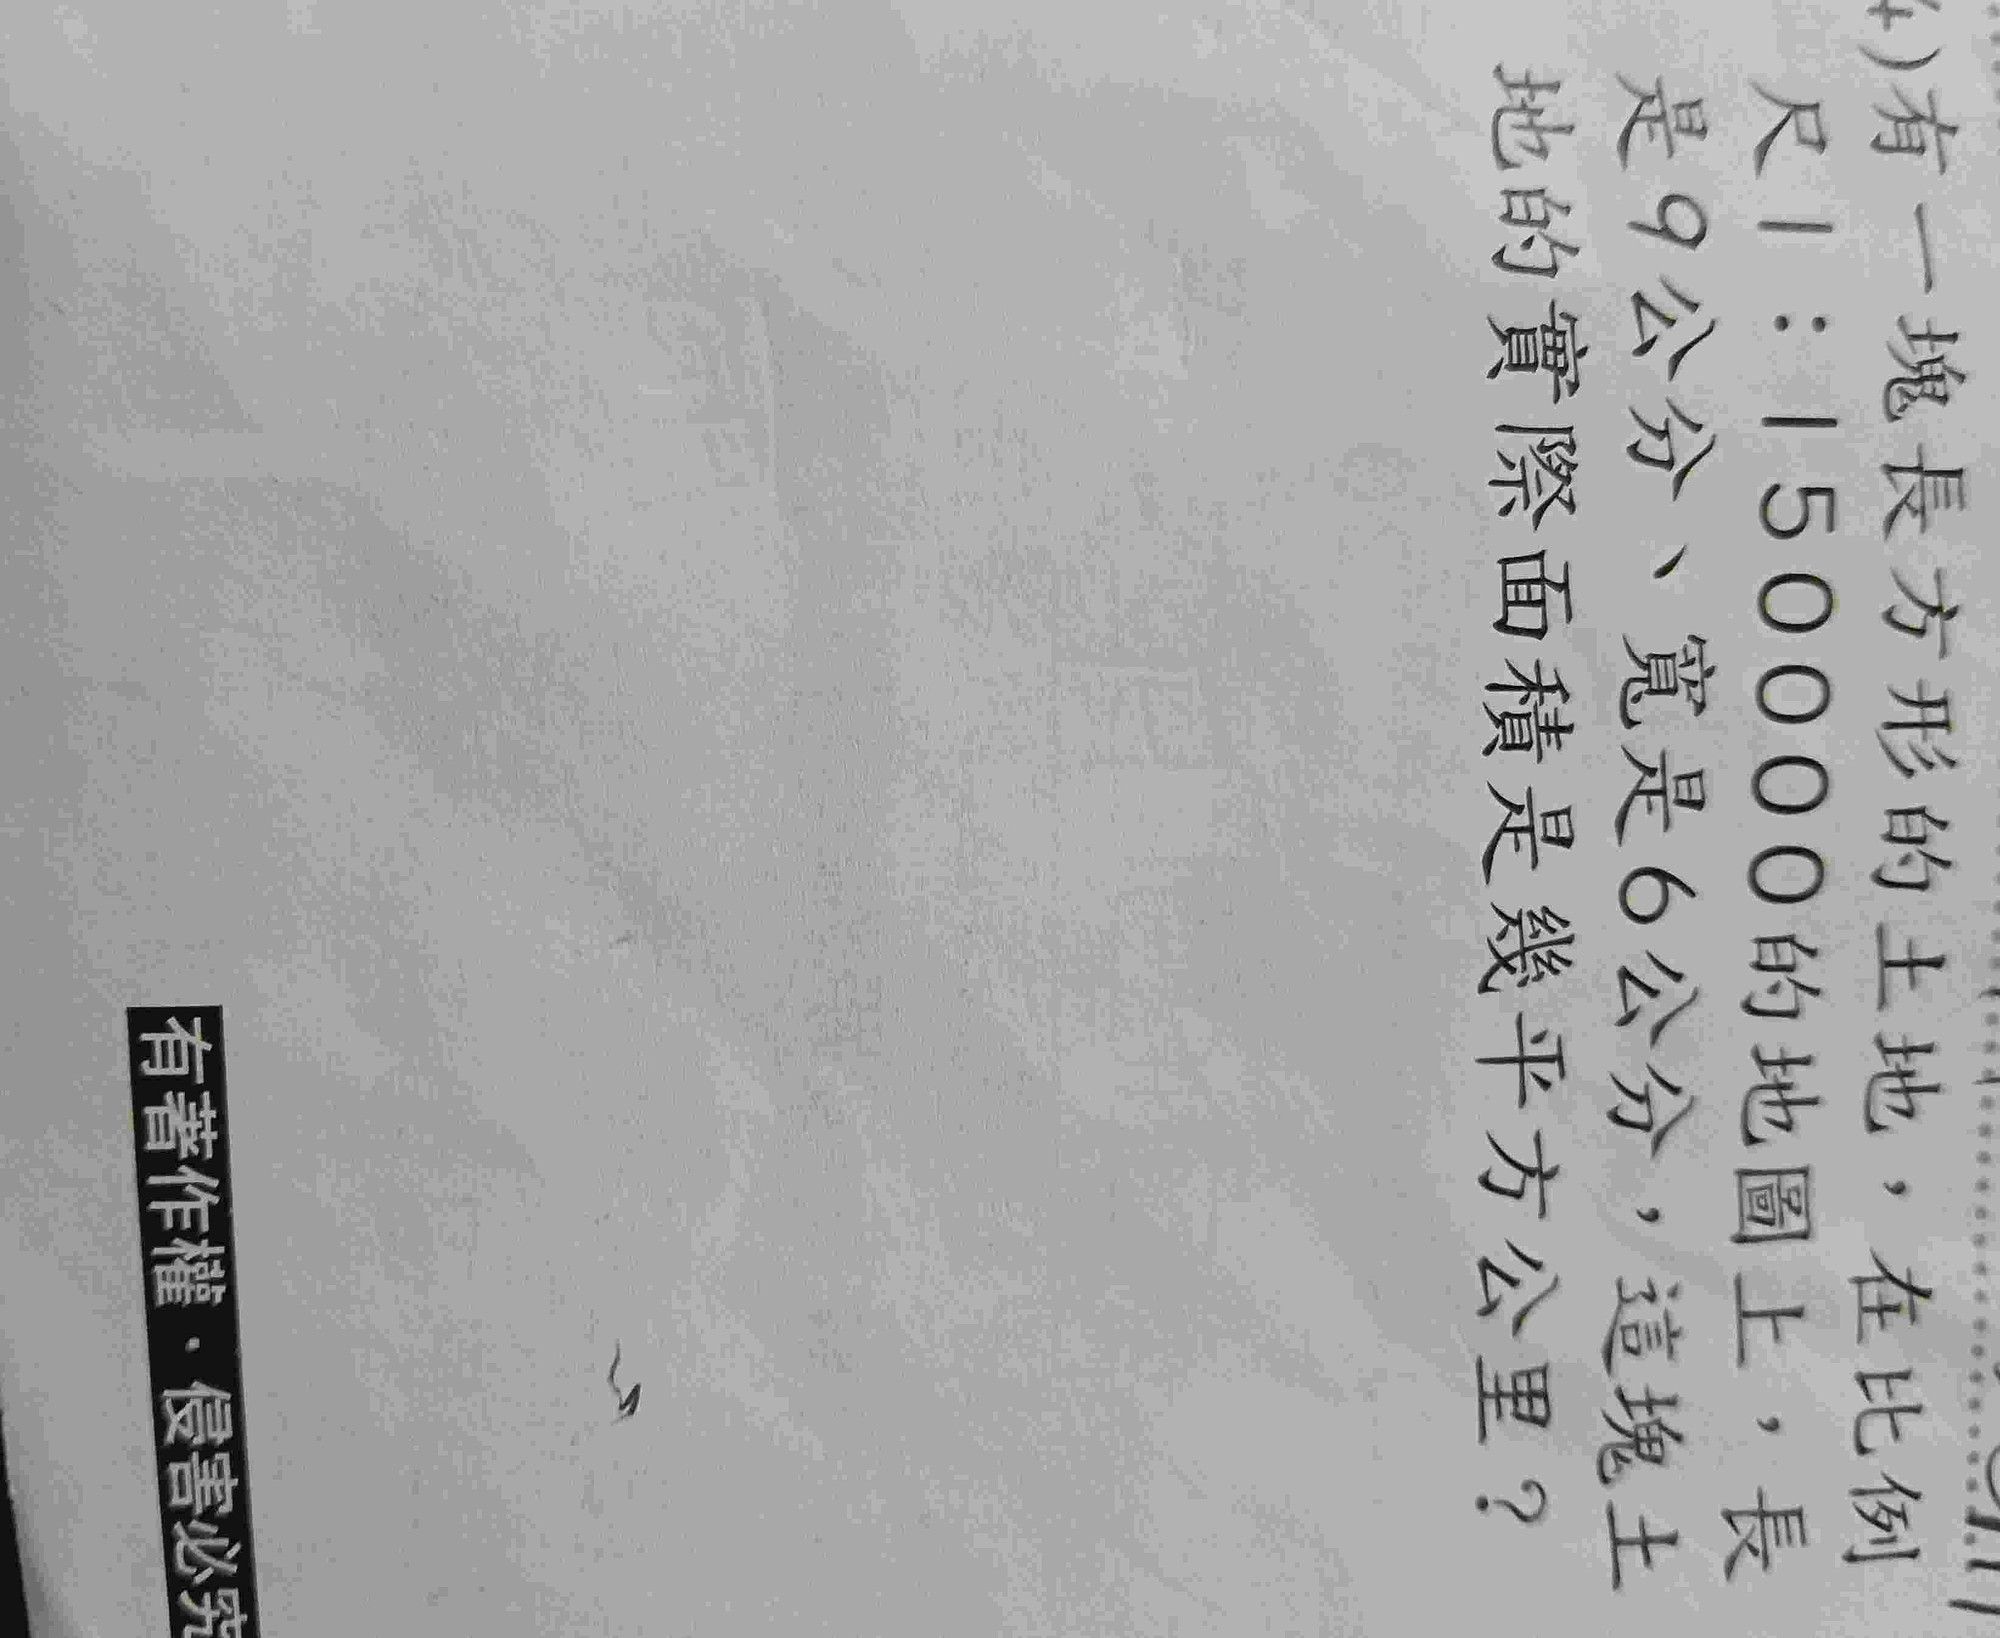 4)有一塊長方形的土地，在比例
尺1：150000的地圖上，長
是9公分、寬是6公分，這塊土
地的實際面積是幾平方公里？
有著作權·侵害必究